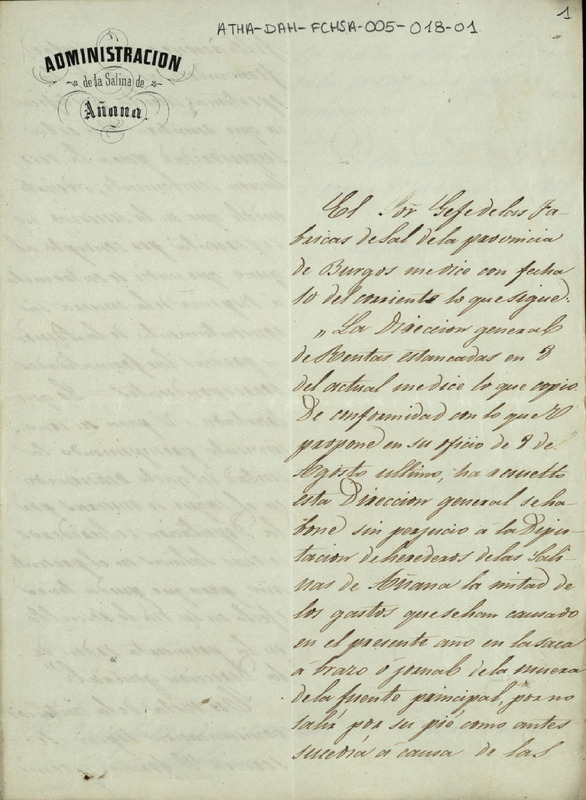 1
ATHA-DAH-FCHSA-005-018-01
ADMINISTRACION
de la Salina de
Añana
El Sor. Gefe de las Fa-
bricas de Sal de la provincia
de Burgos me dice con fecha
10 del corriente lo que sigue.
"La Direccion general
de Rentas estancadas en 3
del actual me dice lo que copio
De conformidad con lo que V
propone en su oficio de 9 de
Agosto ultimo, ha resuelto
esta Direccion general se ha
bone sin perjuicio á la Dipu-
tacion de herederos de las Sali
nas de Añana la mitad de
los gastos que se han causado
en el presente año en la saca
á brazo ó jornal de la muera
de la fuente principal, por no
salir por su pie como antes
sucedia á causa de las